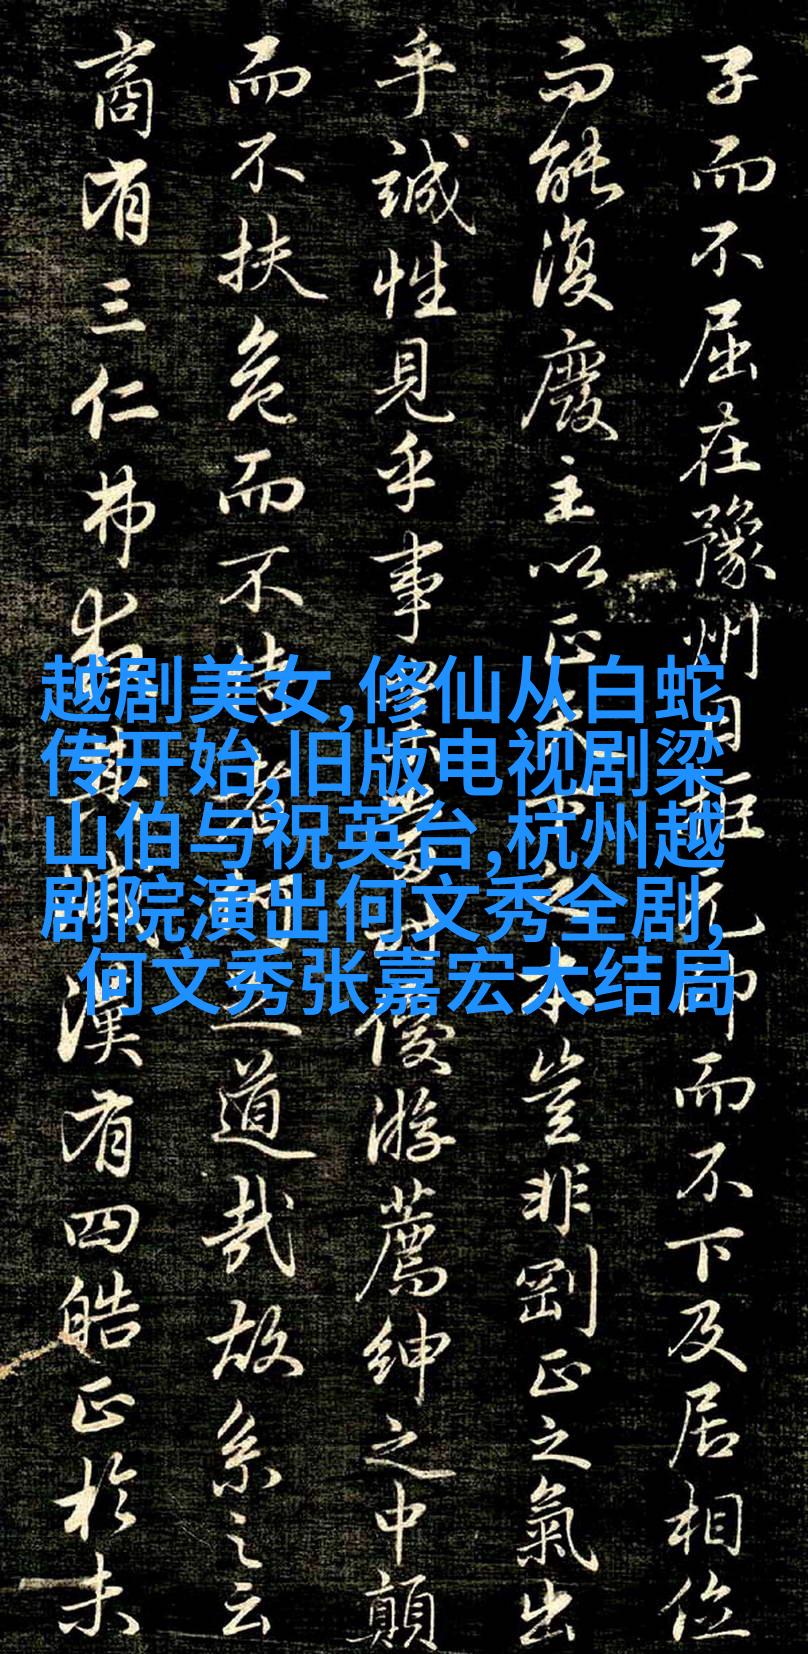 子而不屈在豫州日拒元帥而不下及居相位
而能復廢主以正天下之本豈非剛正之氣出
乎誠性見乎事業當時優游薦紳之中顛
而不扶危而不持者之道哉故系之云
商有三仁弗救其滅漢有四皓正於未
越剧美女,修仙从白蛇
传开始,旧版电视剧梁
山伯与祝英台,杭州越
剧院演出何文秀全剧,
何文秀张嘉宏大结局